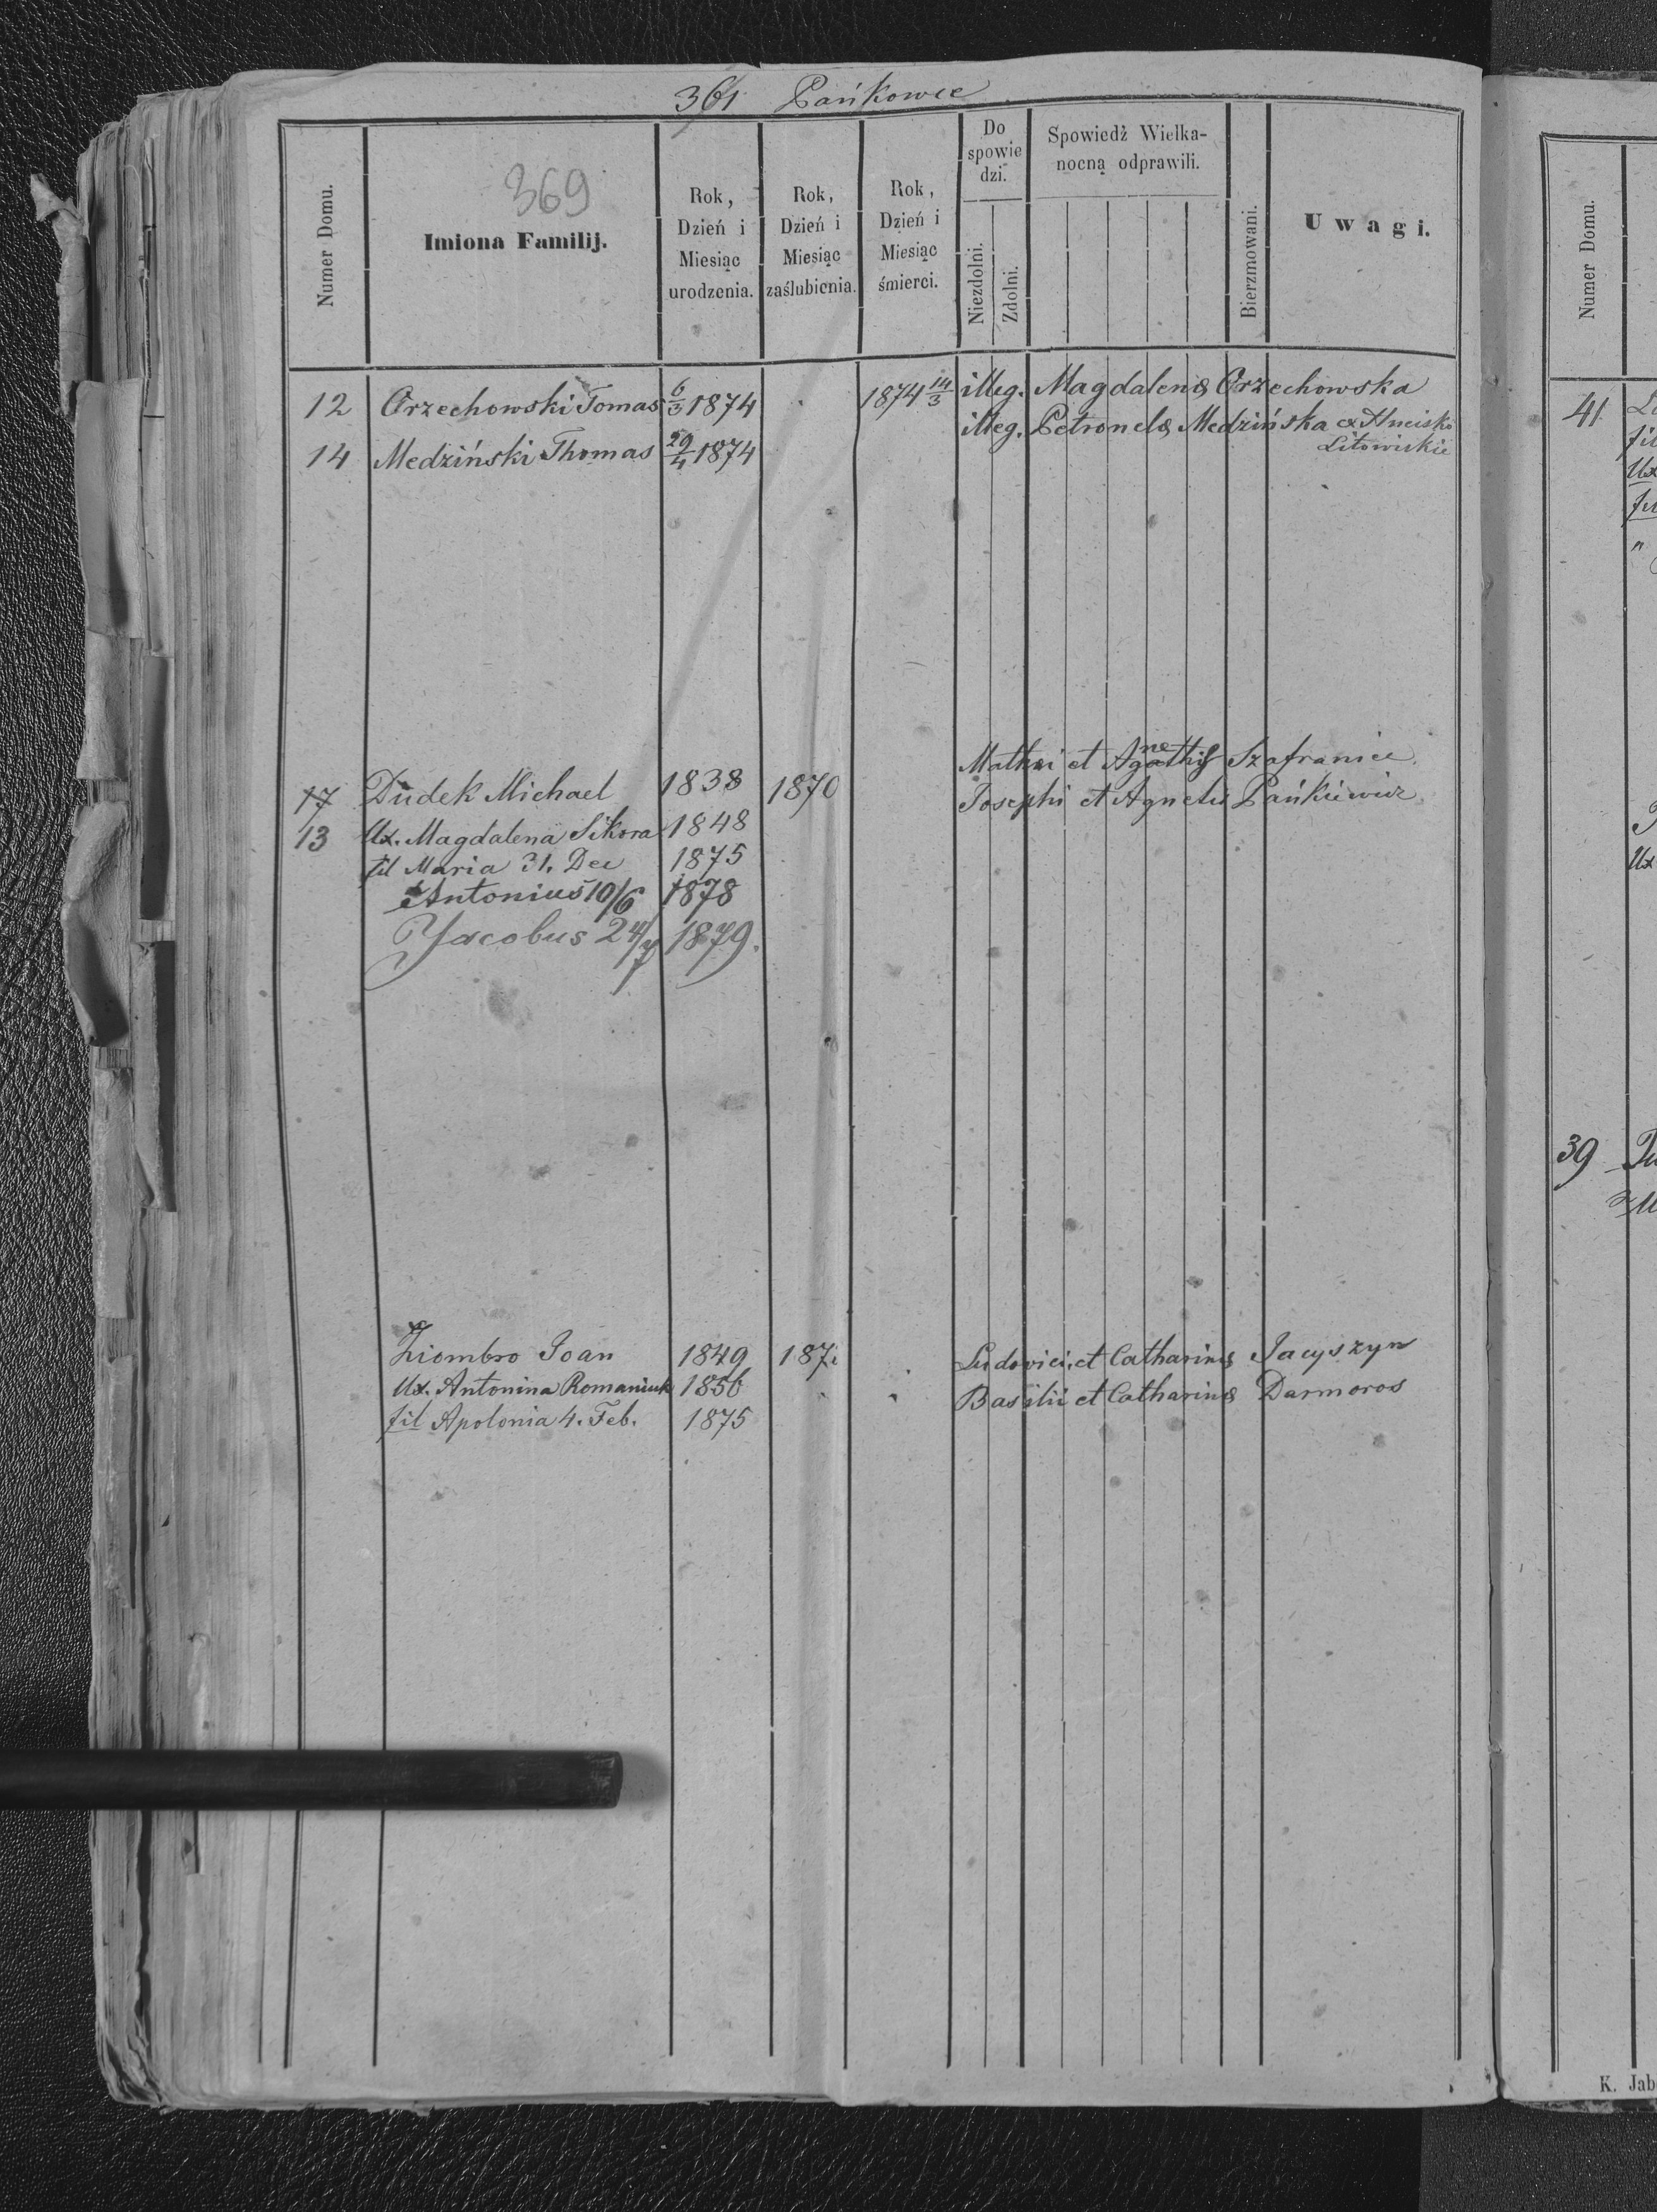 361 Pańkowce
Numer Domu.
369
Imiona Familij.
Rok, Dzień i Miesiąc urodzenia.
Rok, Dzień i Miesiąc zaślubienia.
Rok, Dzień i Miesiąc śmierci.
Do spowiedzi.
Niezdolni.
Zdolni.
Spowiedź Wielkanocną odprawili.
Bierzmowani.
Uwagi.
12 Orzechowski Tomas 6/3 1874 1874 14/3 illeg. Magdalenæ Orzechowska
14 Medziński Thomas 29/4 1874 illeg. Petronelæ Medzińska ex
Litowiskie
17 Dudek Michael 1838 1870 Mathei et Agnethis Szafraniec
13 Ux. Magdalena Sikora 1848 Josephi et Agnetis Pańkiewicz
fil Maria 31. Dec 1875
Antonius 10/6 1878
Jacobus 24/7 1879.
Ziombro Joan 1849 187 Ludovici et Catharinæ Jacyszyn
Ux. Antonina Romaniuk 1856 Basilii et Catharinæ Darmoros
fil Apolonia 4. Feb. 1875
Numer Domu.
41
fil
Ux
Ux
39
K. Jab